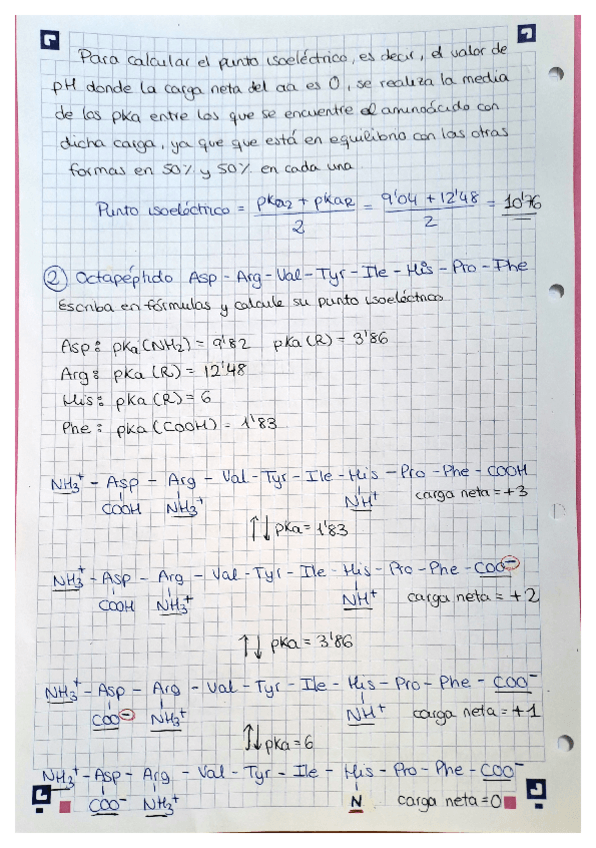 Para calcular el punto isoeléctrico, es decir, el valor de
pH donde la carga neta del aa es 0, se realiza la media
de las pka entre los que se encuentre el aminoácido con
dicha carga, ya que que está en equilibrio con las otras
formas en 50% y 50% en cada una
Punto isoeléctrico = pka2 + pkaR / 2 = 9'04 + 12'48 / 2 = 10'76
② Octapéptido Asp - Arg - Val - Tyr - Ile - His - Pro - Phe
Escriba en fórmulas y calcule su punto isoeléctrico
Asp: pka(NH2) = 9'82 pka(R) = 3'86
Arg: pka (R) = 12'48
His: pka(R) = 6
Phe: pka(COOH) = 1'83
NH3+ - Asp - Arg - Val - Tyr - Ile - His - Pro - Phe - COOH
COOH NH3+ NH+ carga neta = +3
↑↓ pka = 1'83
NH3+ - Asp - Arg - Val - Tyr - Ile - His - Pro - Phe - COO-
COOH NH3+ NH+ carga neta = +2
↑↓ pka = 3'86
NH3+ - Asp - Arg - Val - Tyr - Ile - His - Pro - Phe - COO-
COO- NH3+ NH+ carga neta = +1
↑↓ pka = 6
NH3+ - Asp - Arg - Val - Tyr - Ile - His - Pro - Phe - COO-
COO- NH3+ N carga neta = 0